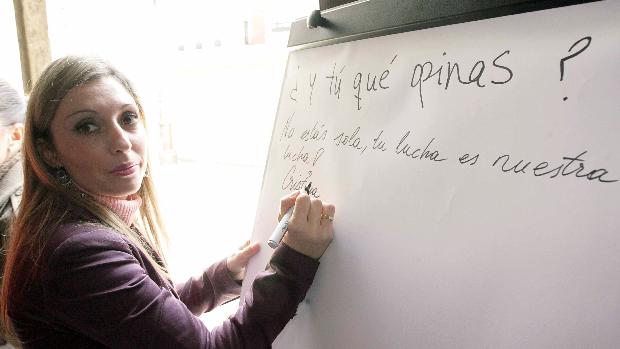 ¿ y tú qué opinas ?
No estás sola, tu lucha es nuestra
lucha
Cristina